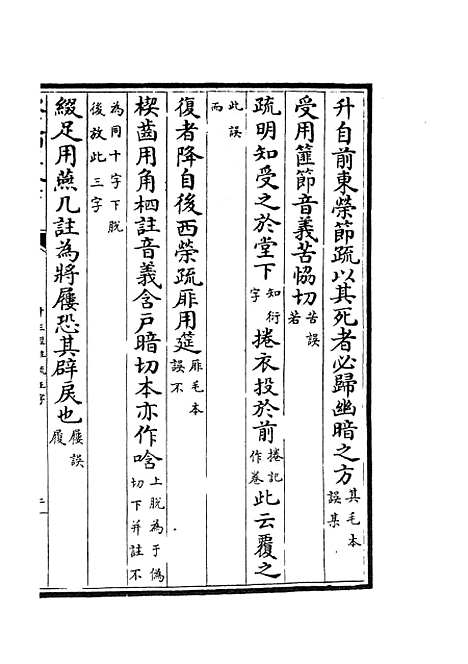 升自前東榮節疏以其死者必歸幽暗之方其毛本誤某
受用篚節音義苦恊切苦誤若
疏明知受之於堂下知衍字捲衣投於前捲記作卷此云覆之
此誤而
復者降自後西榮疏厞用筵厞毛本誤不
楔齒用角柶註音義含戶暗切本亦作唅上脫為于偽切下并註不
為同十字下脫後放此三字
綴足用燕几註為將屨恐其辟戾也屨誤履